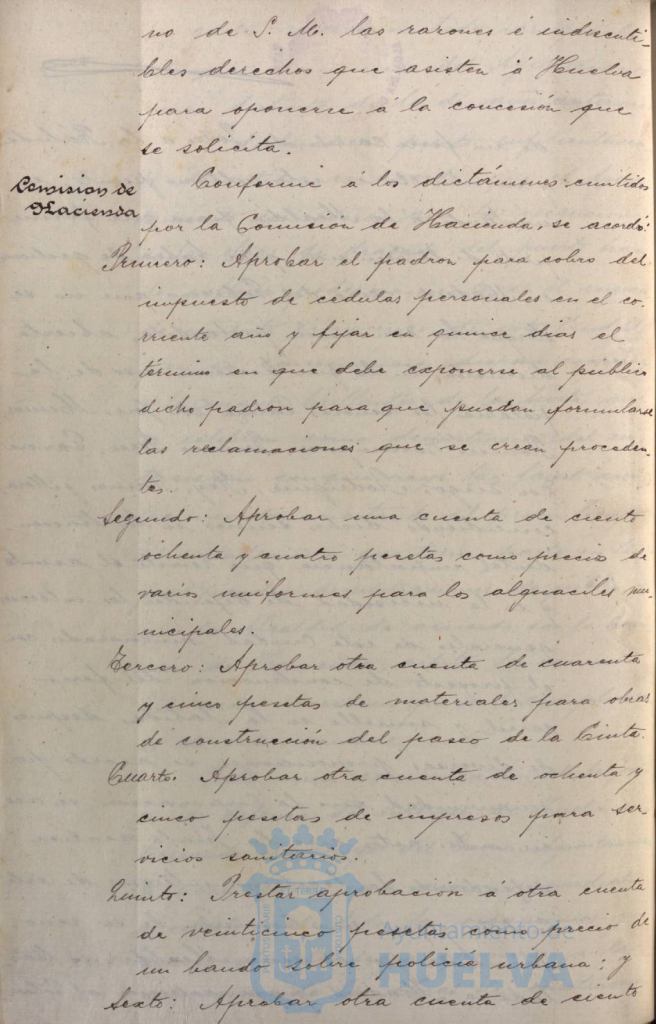 no de S. M. las razones é indiscuti-
bles derechos que asisten á Huelva
para oponerse á la concesión que
se solicita.
Comision de
Hacienda
Conforme á los dictámenes emitidos
por la Comisión de Hacienda, se acordó:
Primero: Aprobar el padron para cobro del
impuesto de cédulas personales en el co-
rriente año y fijar en quince dias el
término en que debe exponerse al público
dicho padron para que puedan formularse
las reclamaciones que se crean proceden-
tes.
Segundo: Aprobar una cuenta de ciento
ochenta y cuatro pesetas como precio de
varios uniformes para los alguaciles mu-
nicipales.
Tercero: Aprobar otra cuenta de cuarenta
y cinco pesetas de materiales para obras
de construcción del paseo de la Cinta.
Cuarto. Aprobar otra cuenta de ochenta y
cinco pesetas de impresos para ser-
vicios sanitarios.
Quinto: Prestar aprobación á otra cuenta
de veinticinco pesetas como precio de
un bando sobre policía urbana; y
Sexto: Aprobar otra cuenta de ciento
Ayuntamiento de
HUELVA